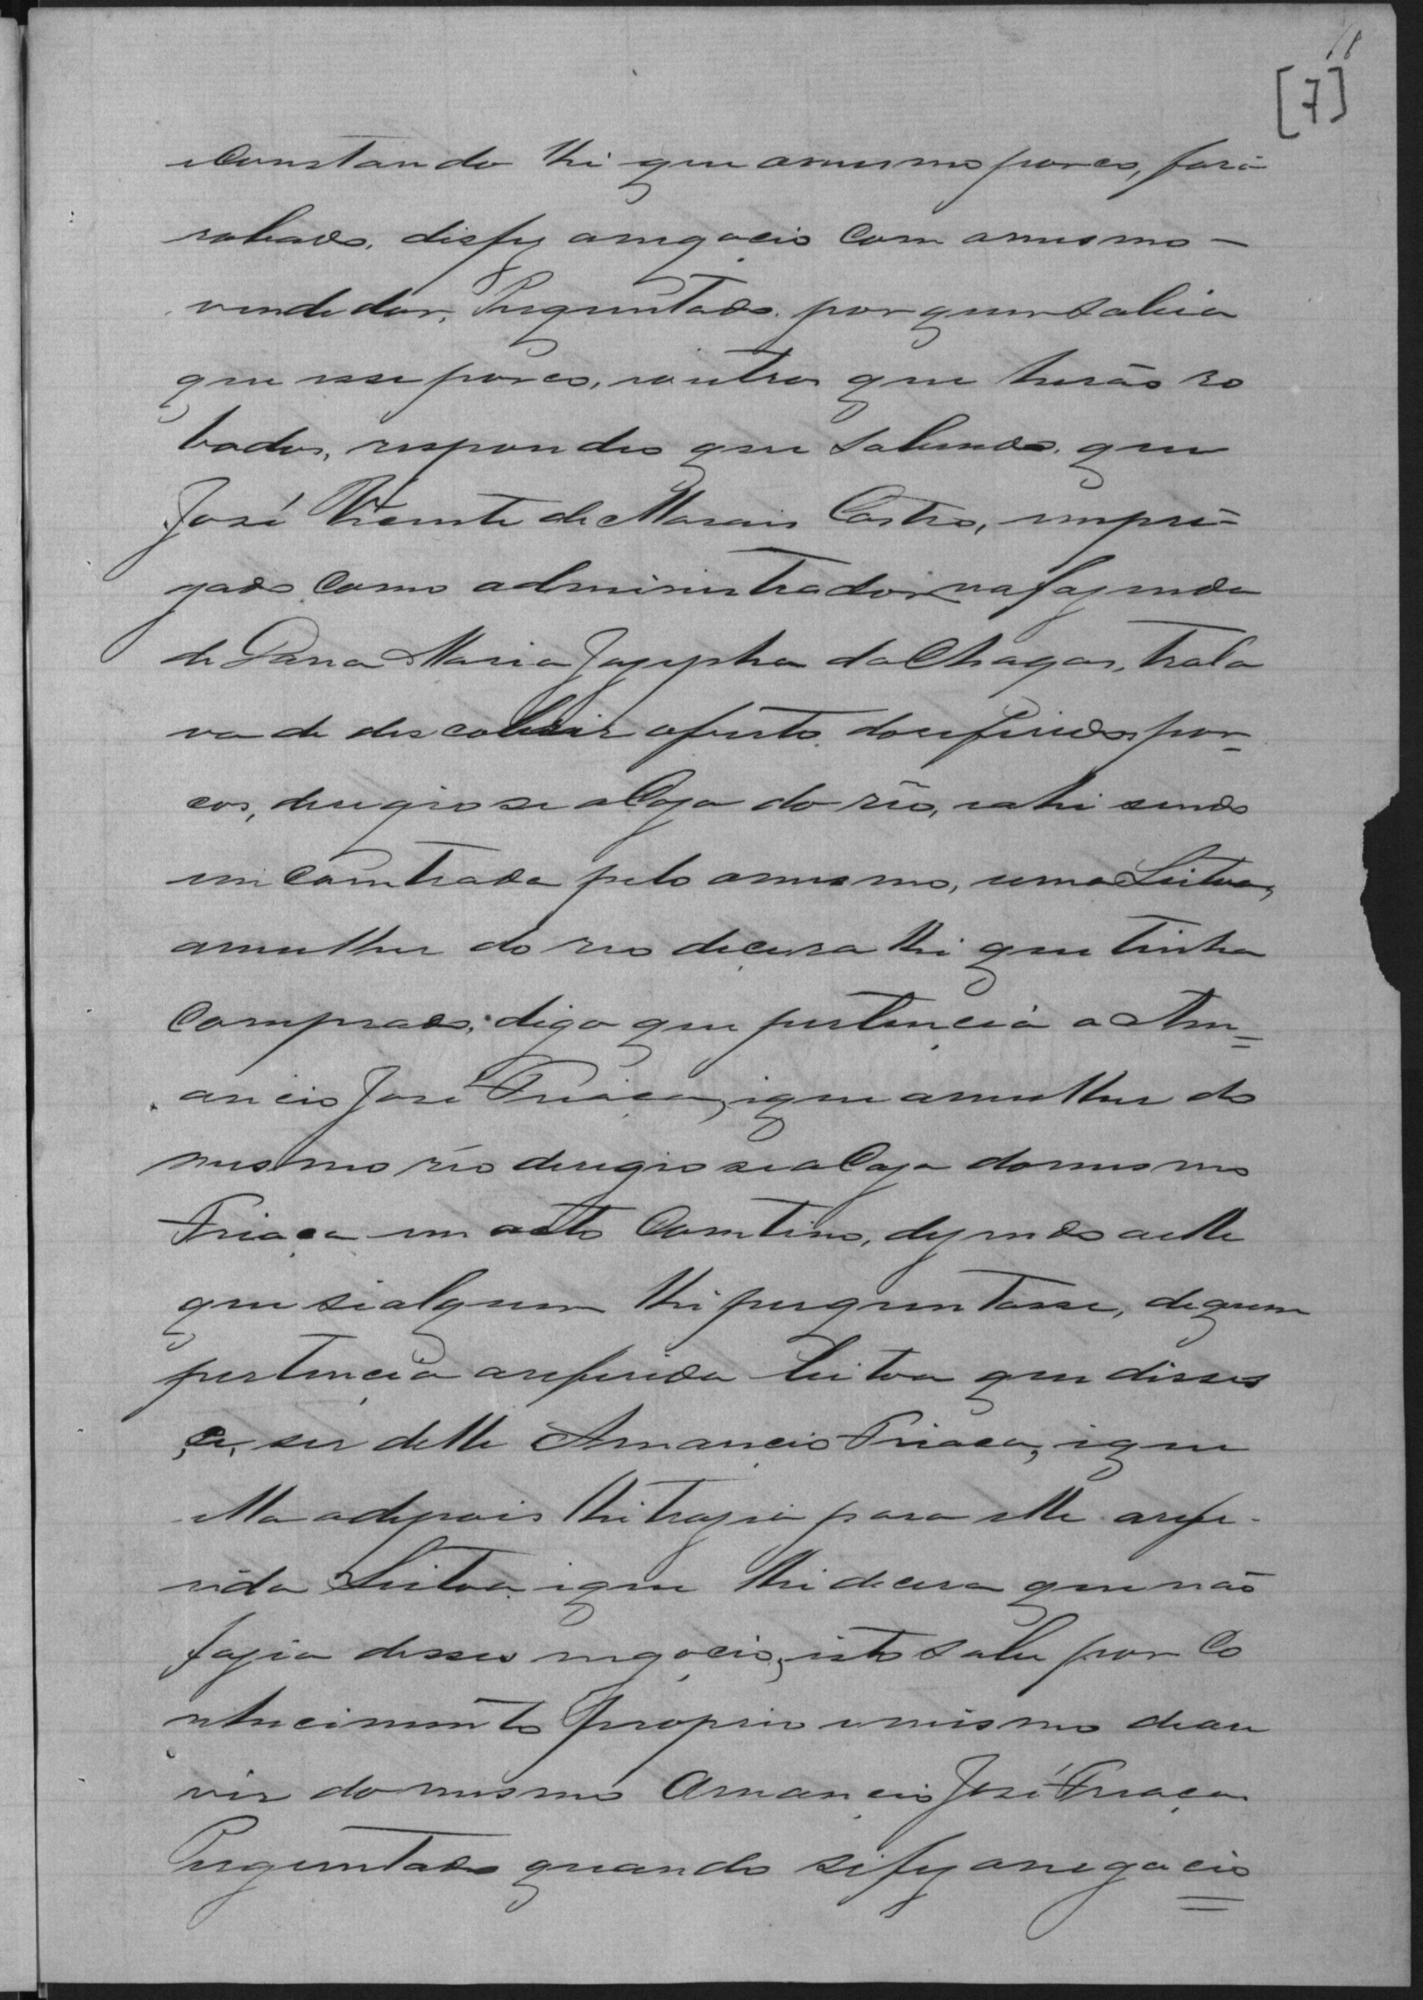 [7]
Constando lhi que omesmo porco, fora
robado, disfez onegocio com omesmo
vendedor, Preguntado por quem sabia
que esse porco, ioutros que herão ro
bados, respondeo que sabendo que
José Vicente de Morais Castro, impri=
gado como administrador na fazenda
de Dona Maria Jozepha da Chagas, trata
va de descobrir ofurto doriferidos por=
cos, derigio se a Caza do rio, eahi sendo
incomtrada pelo omesmo, uma Leitoa,
amulher do reo dicera lhi que tinha
comprado, digo que pertencia a Am=
ancio José Friaça, ique amulher do
mesmo rio derigio se a Caza domesmo
Friaça em acto Comtino, dizendo aelle
que sialguem lhi perguntasse, dequem
pertencia areferida leitoa que disses
se, ser delle Amancio Friaça, ique
ella adepois lhi trazia para elle arefe-
rida Leitoa ique lhi dicera que não
fazia desses negocio, isto sabe por Co
nhecimento proprio emismo deou
vir do mesmo Amancio José Friaça
Preguntado quando sifez onegocio